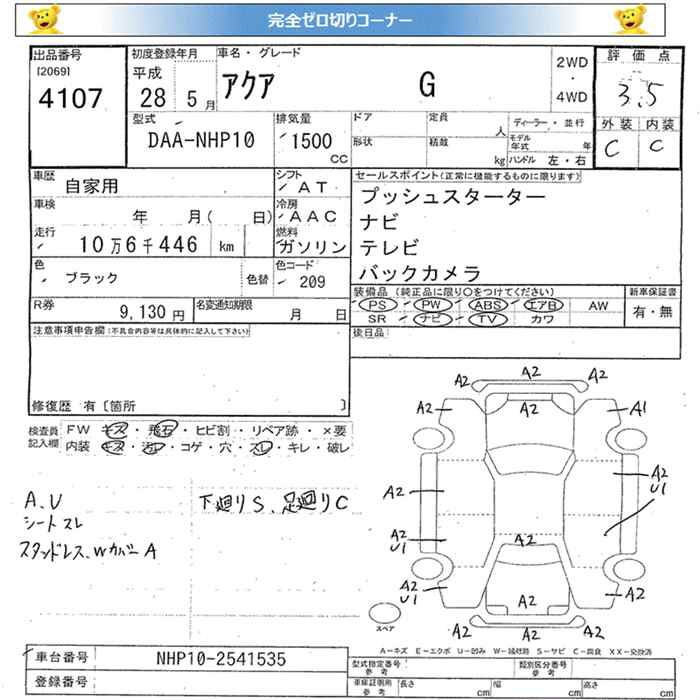 完全ゼロ切りコーナー
出品番号 初度登録年月 車名・グレード 2WD ・ 4WD 評価点
[2069] 平成
4107 28 5月 アクア G 3.5
型式 排気量 ドア 定員 人 ディーラー・並行 外装 内装
DAA-NHP10 1500 CC 形状 積載 kg モデル年式 年 C C
ハンドル 左・右
車歴 自家用 シフト AT セールスポイント(正常に機能するものに限ります)
車検 年 月( 日) 冷房 AAC プッシュスターター
走行 10万6千446 km 燃料 ガソリン ナビ
テレビ
色 ブラック 色替 色コード 209 バックカメラ
装備品(純正品に限り○をつけてください) 新車保証書
R券 9,130円 名変通知期限 月 日 PS PW ABS エアB AW 有・無
SR ナビ TV カワ
注意事項申告欄(不具合内容等は具体的に記入して下さい) 後日品
修復歴 有 〔箇所 〕
検査員記入欄 FW キズ・飛石・ヒビ割・リペア跡・×要
内装 キズ・汚レ・コゲ・穴・スレ・キレ・破レ
A.U 下廻りS、足廻りC
シートスレ
スタッドレス、Wカバー A
A2 A2 A2
A2 A2 A1
A2 A2 U1
A2 U1 A2
A2 U1
A2
A2 A2
スペア
A-キズ E-エクボ U-凹み W-補修跡 S-サビ C-腐食 XX-交換済
車台番号 NHP10-2541535
登録番号
型式指定番号 参考 類別区分番号 参考
車庫証明用 参考 長さ cm 幅 cm 高さ cm